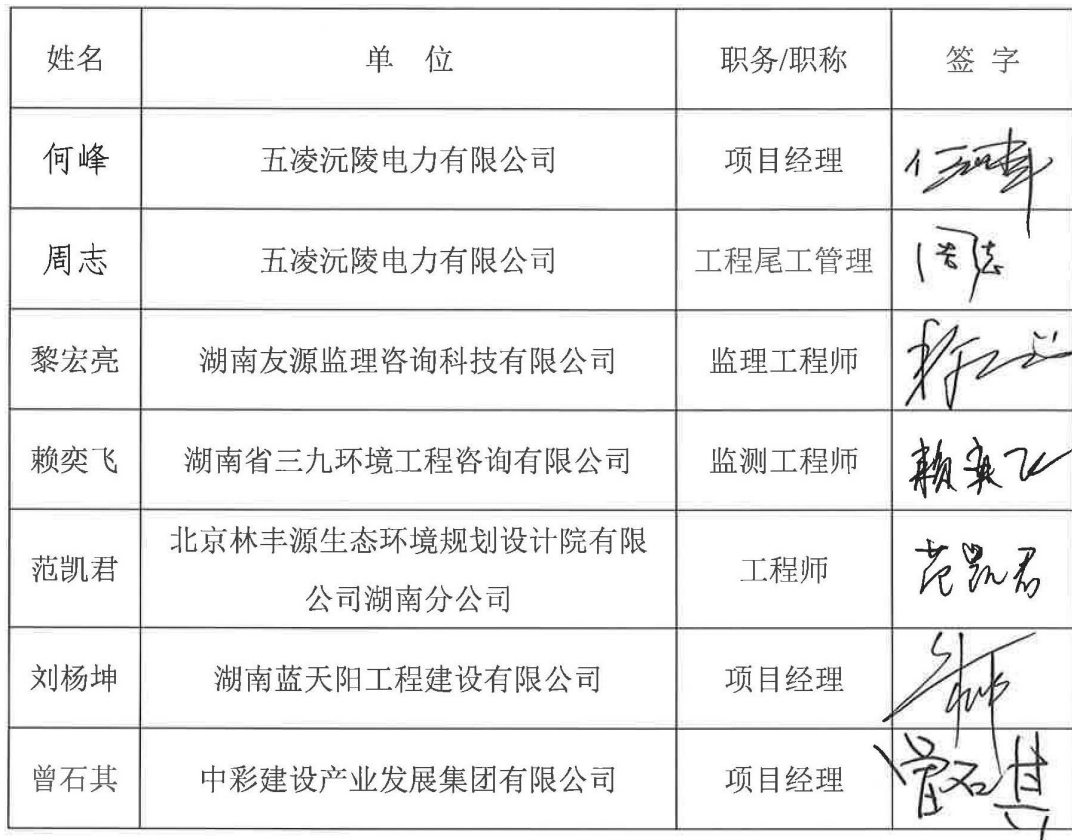 姓名 单 位 职务/职称 签 字
何峰 五凌沅陵电力有限公司 项目经理
周志 五凌沅陵电力有限公司 工程尾工管理 周志
黎宏亮 湖南友源监理咨询科技有限公司 监理工程师
赖奕飞 湖南省三九环境工程咨询有限公司 监测工程师 赖奕飞
范凯君 北京林丰源生态环境规划设计院有限
公司湖南分公司 工程师 范凯君
刘杨坤 湖南蓝天阳工程建设有限公司 项目经理
曾石其 中彩建设产业发展集团有限公司 项目经理 曾石其